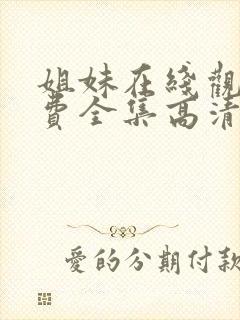 姐妹在綫觀
費全集高清
愛的分期付款